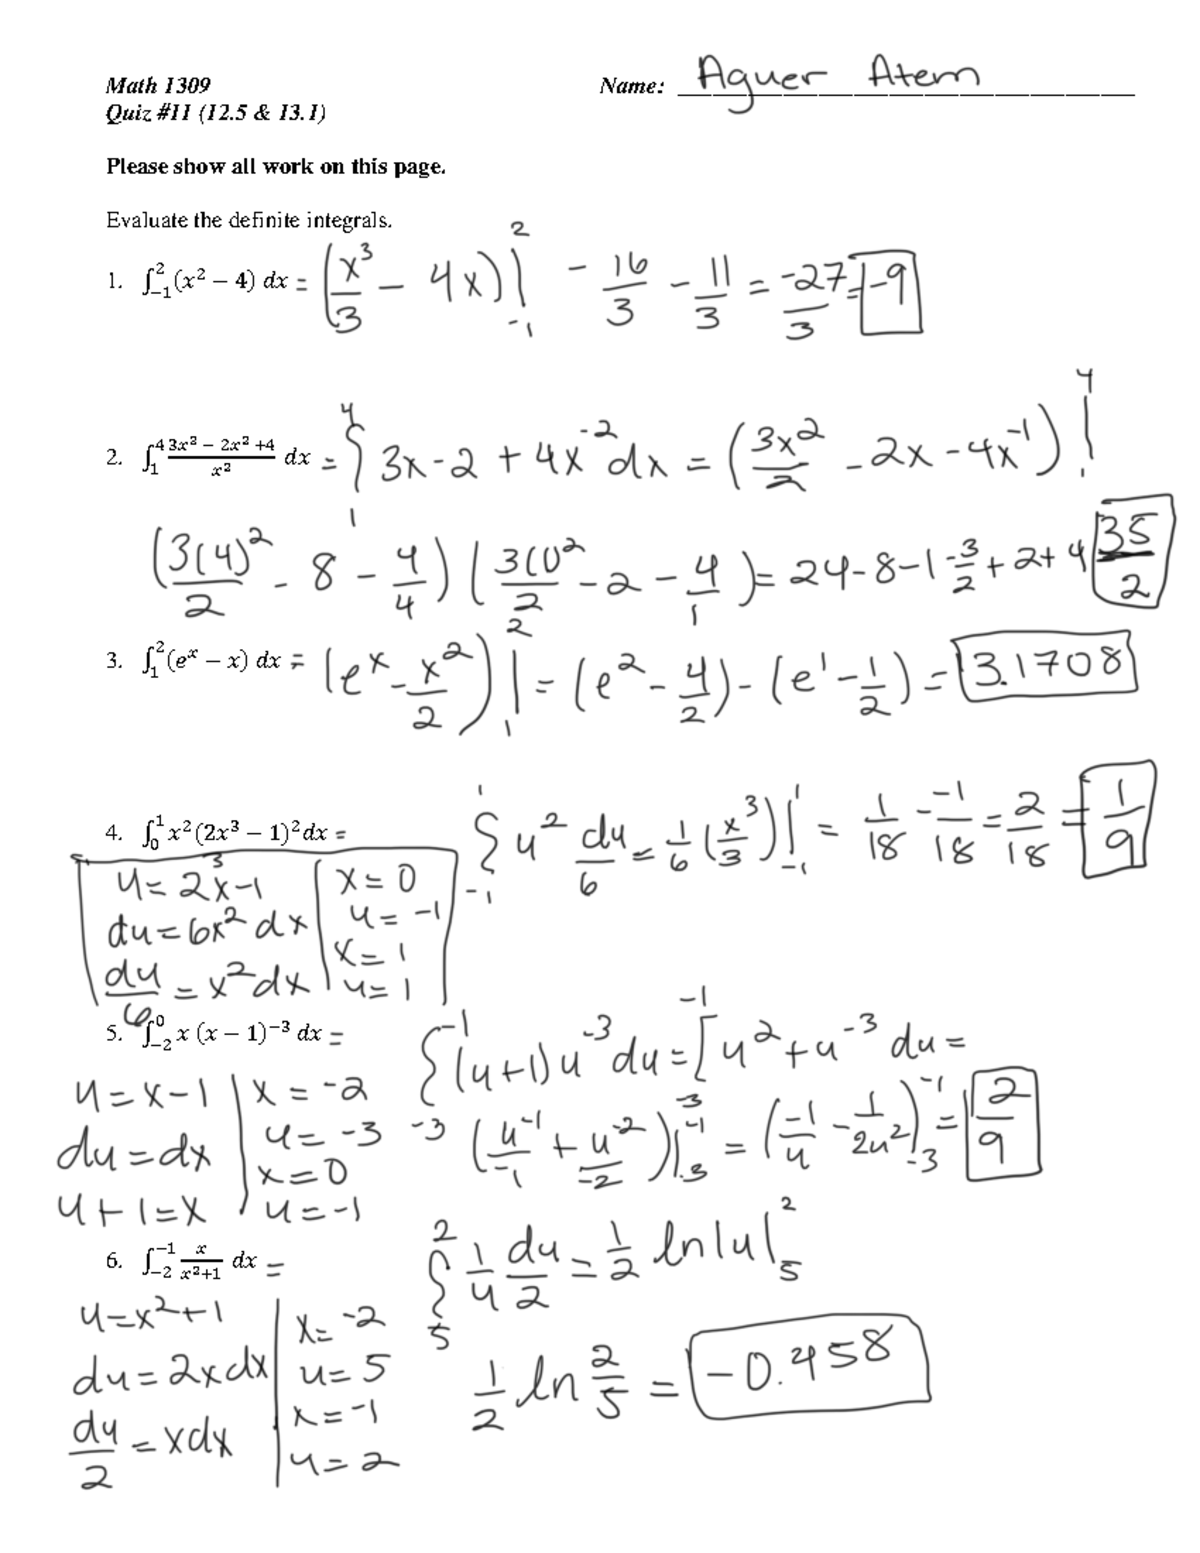 Math 1309 Name: Aguer Atem
Quiz #11 (12.5 & 13.1)
Please show all work on this page.
Evaluate the definite integrals.
1. ∫_{-1}^{2} (x² – 4) dx = (x³/3 – 4x)|_{-1}^{2} - 16/3 - 11/3 = -27/3 = -9
2. ∫_1^4 (3x³ – 2x² +4)/x² dx = ∫_1^4 3x - 2 + 4x^{-2} dx = (3x²/2 - 2x - 4x^{-1})|_1^4
(3(4)²/2 - 8 - 4/4) (3(1)²/2 - 2 - 4/1) = 24 - 8 - 1 - 3/2 + 2 + 4 35/2
3. ∫_1^2 (e^x – x) dx = (e^x - x²/2)|_1^2 = (e² - 4/2) - (e^1 - 1/2) = 3.1708
4. ∫_0^1 x²(2x³ – 1)² dx = ∫_{-1}^{1} u² du/6 = 1/6 (x³/3)|_{-1}^{1} = 1/18 - -1/18 = 2/18 = 1/9
u = 2x³ - 1 x = 0
du = 6x² dx u = -1
du/6 = x² dx x = 1
u = 1
5. ∫_{-2}^{0} x (x – 1)^{-3} dx = ∫_{-3}^{-1} (u+1) u^{-3} du = ∫_{-3}^{-1} u² + u^{-3} du =
u = x - 1 x = -2
du = dx u = -3 (u^{-1}/-1 + u^{-2}/-2)|_{-3}^{-1} = (-1/u - 1/2u²)_{-3}^{-1} = 2/9
u + 1 = x x = 0
u = -1
6. ∫_{-2}^{-1} x/(x²+1) dx = ∫_5^2 1/u du/2 = 1/2 ln|u|_5^2
u = x² + 1 x = -2
du = 2x dx u = 5 1/2 ln 2/5 = -0.458
du/2 = x dx x = -1
u = 2